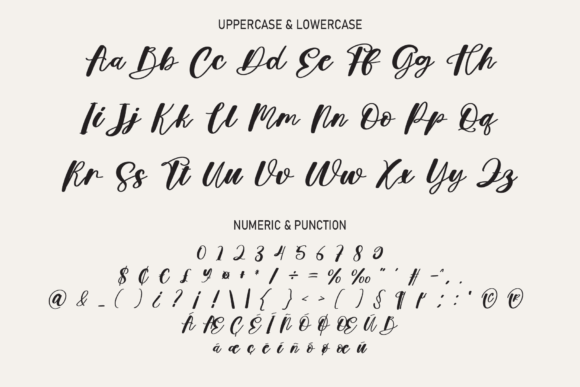 UPPERCASE & LOWERCASE
Aa Bb Cc Dd Ee Ff Gg Hh
Ii Jj Kk Ll Mm Nn Oo Pp Qq
Rr Ss Tt Uu Vv Ww Xx Yy Zz
NUMERIC & PUNCTION
0 1 2 3 4 5 6 7 8 9
$ ¢ C £ ¥ / ÷ = % ‰ " ' - . .
@ & _ ( ) ¿ ? ¡ ! \ | { } < > ( ) § ¶ : ; ' © ®
Á Æ Ç É Í Ñ Ó Ø Œ Ú
á æ ç é í ñ ó ø œ ú